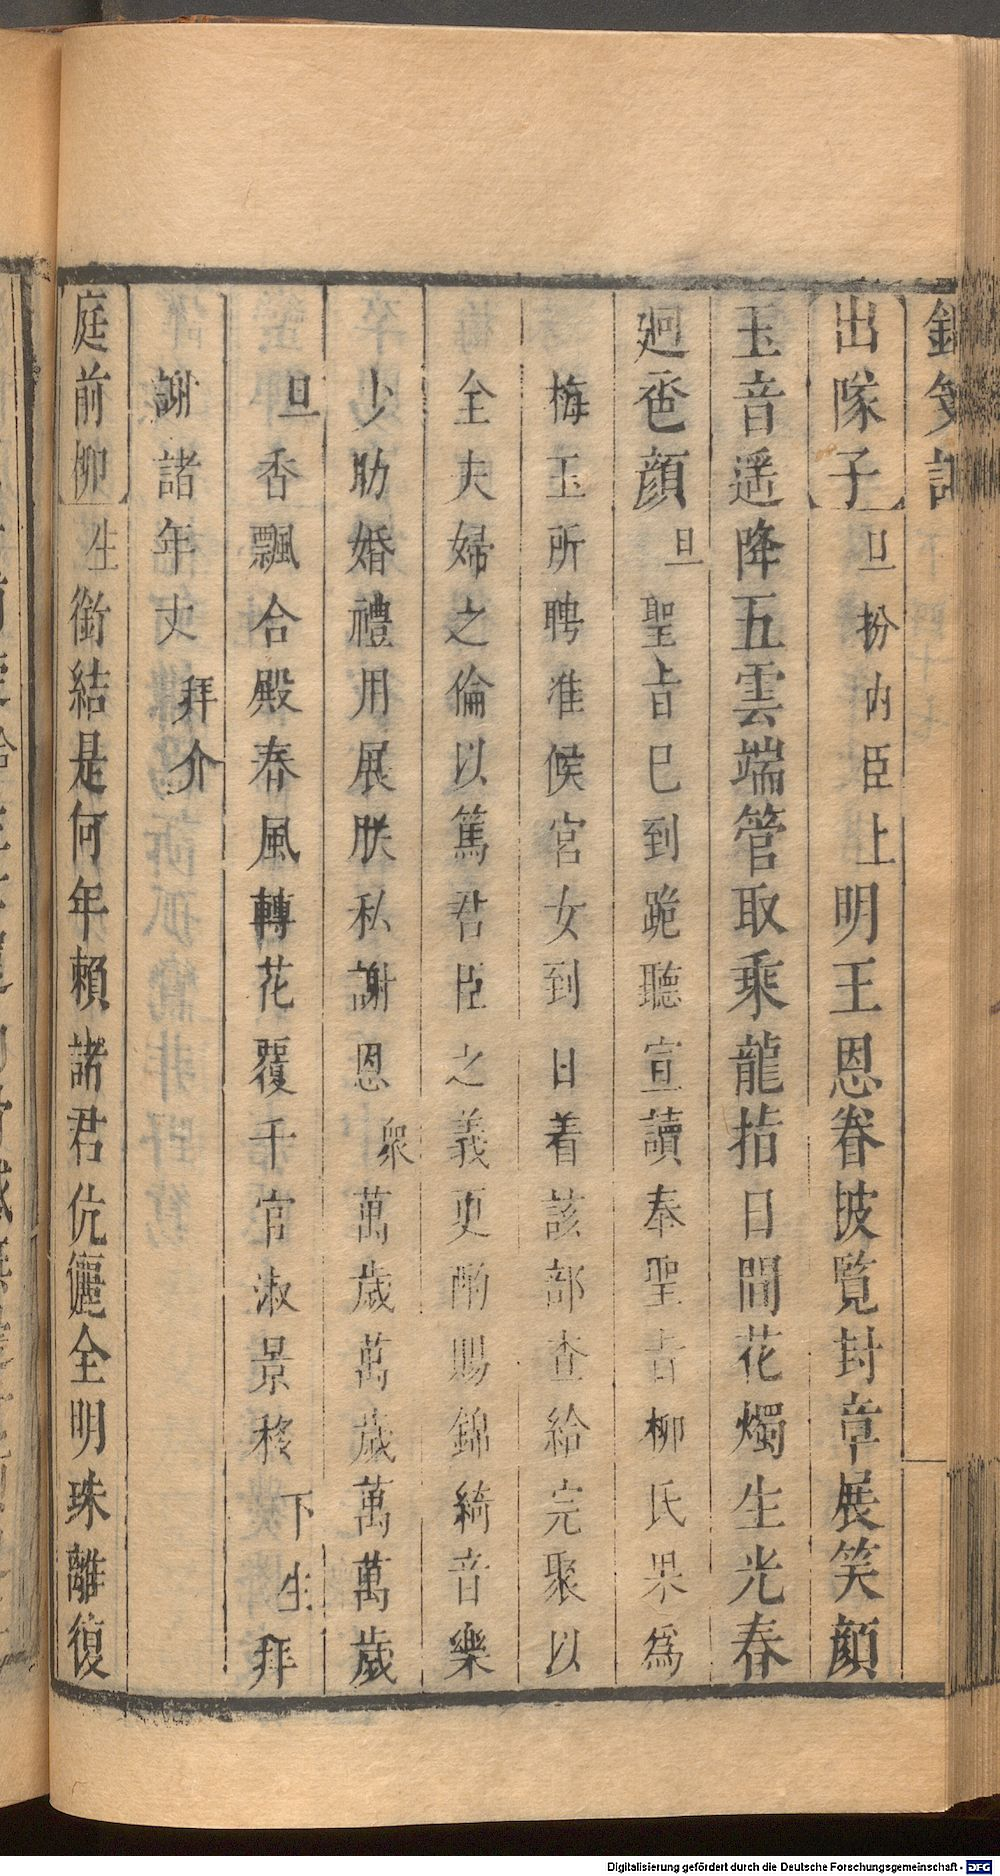 出隊子 旦扮內臣上明王恩眷披覧封章展笑顔
玉音遥降五雲端管取乘龍指日間花燭生光春
廻壺顔 旦聖旨巳到跪聽宣讀奉聖旨柳氏果爲
梅玉所聘准候宮女到日着該部查給完聚以
全夫婦之倫以篤君臣之義更酌賜錦綺音樂
少助婚禮用展朕私謝恩衆萬歲萬歲萬萬歲
旦香飄合殿春風轉花覆千官淑景移下生拜
謝諸年丈拜介
庭前柳 生銜結是何年賴諸君伉儷全明珠離復
Digitalisierung gefördert durch die Deutsche Forschungsgemeinschaft - DFG